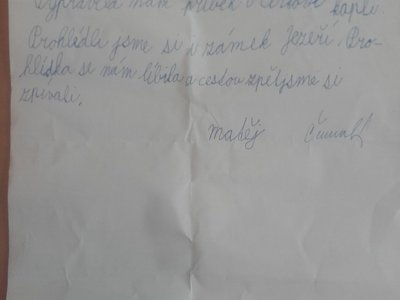 Vyprávěla nám příběh o Čertově kapli.
Prohlédli jsme si i zámek Jezeří. Pro-
hlídka se nám líbila a cestou zpět jsme si
zpívali.
Matěj